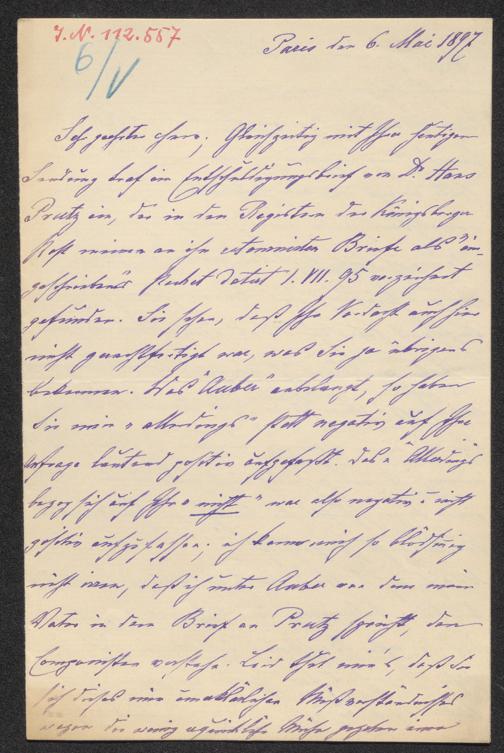 I.N. 112.557
6/V
Paris den 6. Mai 1897
Sehr geehrter Herr; Gleichzeitig mit Ihrer heutigen
Sendung traf ein Entschuldigungsbrief von Dr Hans
Prutz ein, der in den Registern der Königsberger
Post meinen an ihn Briefe als "ein-
geschriebenes Packet" datirt 1. VII. 95 verzeichnet
gefunden. Sie sehen, daß Ihr Verdacht auch hier
nicht gerechtfertigt war, was Sie ja übrigens
bekennen. Was "Auber" anbelangt, so haben
Sie mein "allerdings" statt negativ auf Ihre
Anfrage lautend positiv aufgefaßt. Das "Allerdings"
bezog sich auf Ihr "nicht" war also negativ u nicht
positiv aufzufassen; ich kann mich so blödsinnig
nicht irren, daß ich unter Auber von dem mein
Vater in dem Brief an Prutz spricht, den
Componisten verstehe. Leid thut mir's, daß Sie
sich dieses mir unerklärlichen Mißverständnisses
wegen die wenig Mühe gegeben